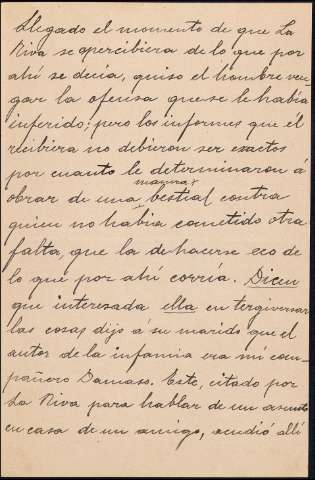 Llegado el momento de que La
Riva se apercibiera de lo que por
ahí se decía, quiso el hombre ven-
gar la ofensa que se le había
inferido; pero los informes que él
recibiera no debieron ser exactos
por cuanto le determinaron á
obrar de una manera bestial contra
quien no había cometido otra
falta, que la de hacerse eco de
lo que por ahí corría. Dicen
que interesada ella en tergiversar
las cosas dijo á su marido que el
autor de la infamia era mi com-
pañero Damaso. Este, citado por
La Riva para hablar de un asunto
en casa de un amigo, acudió allí